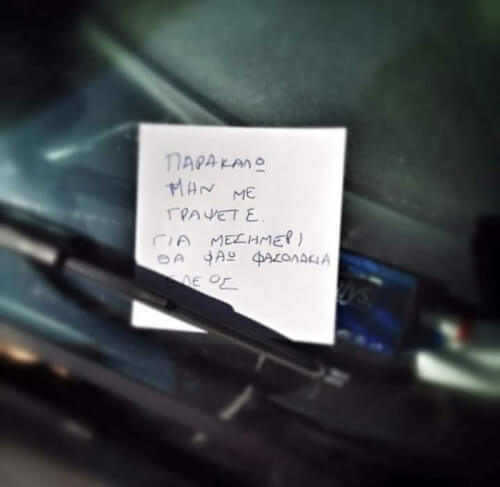 ΠΑΡΑΚΑΛΩ
ΜΗΝ ΜΕ
ΓΡΑΨΕΤΕ.
ΓΙΑ ΜΕΣΗΜΕΡΙ
ΘΑ ΦΑΩ ΦΑΣΟΛΑΚΙΑ
ΕΛΕΟΣ